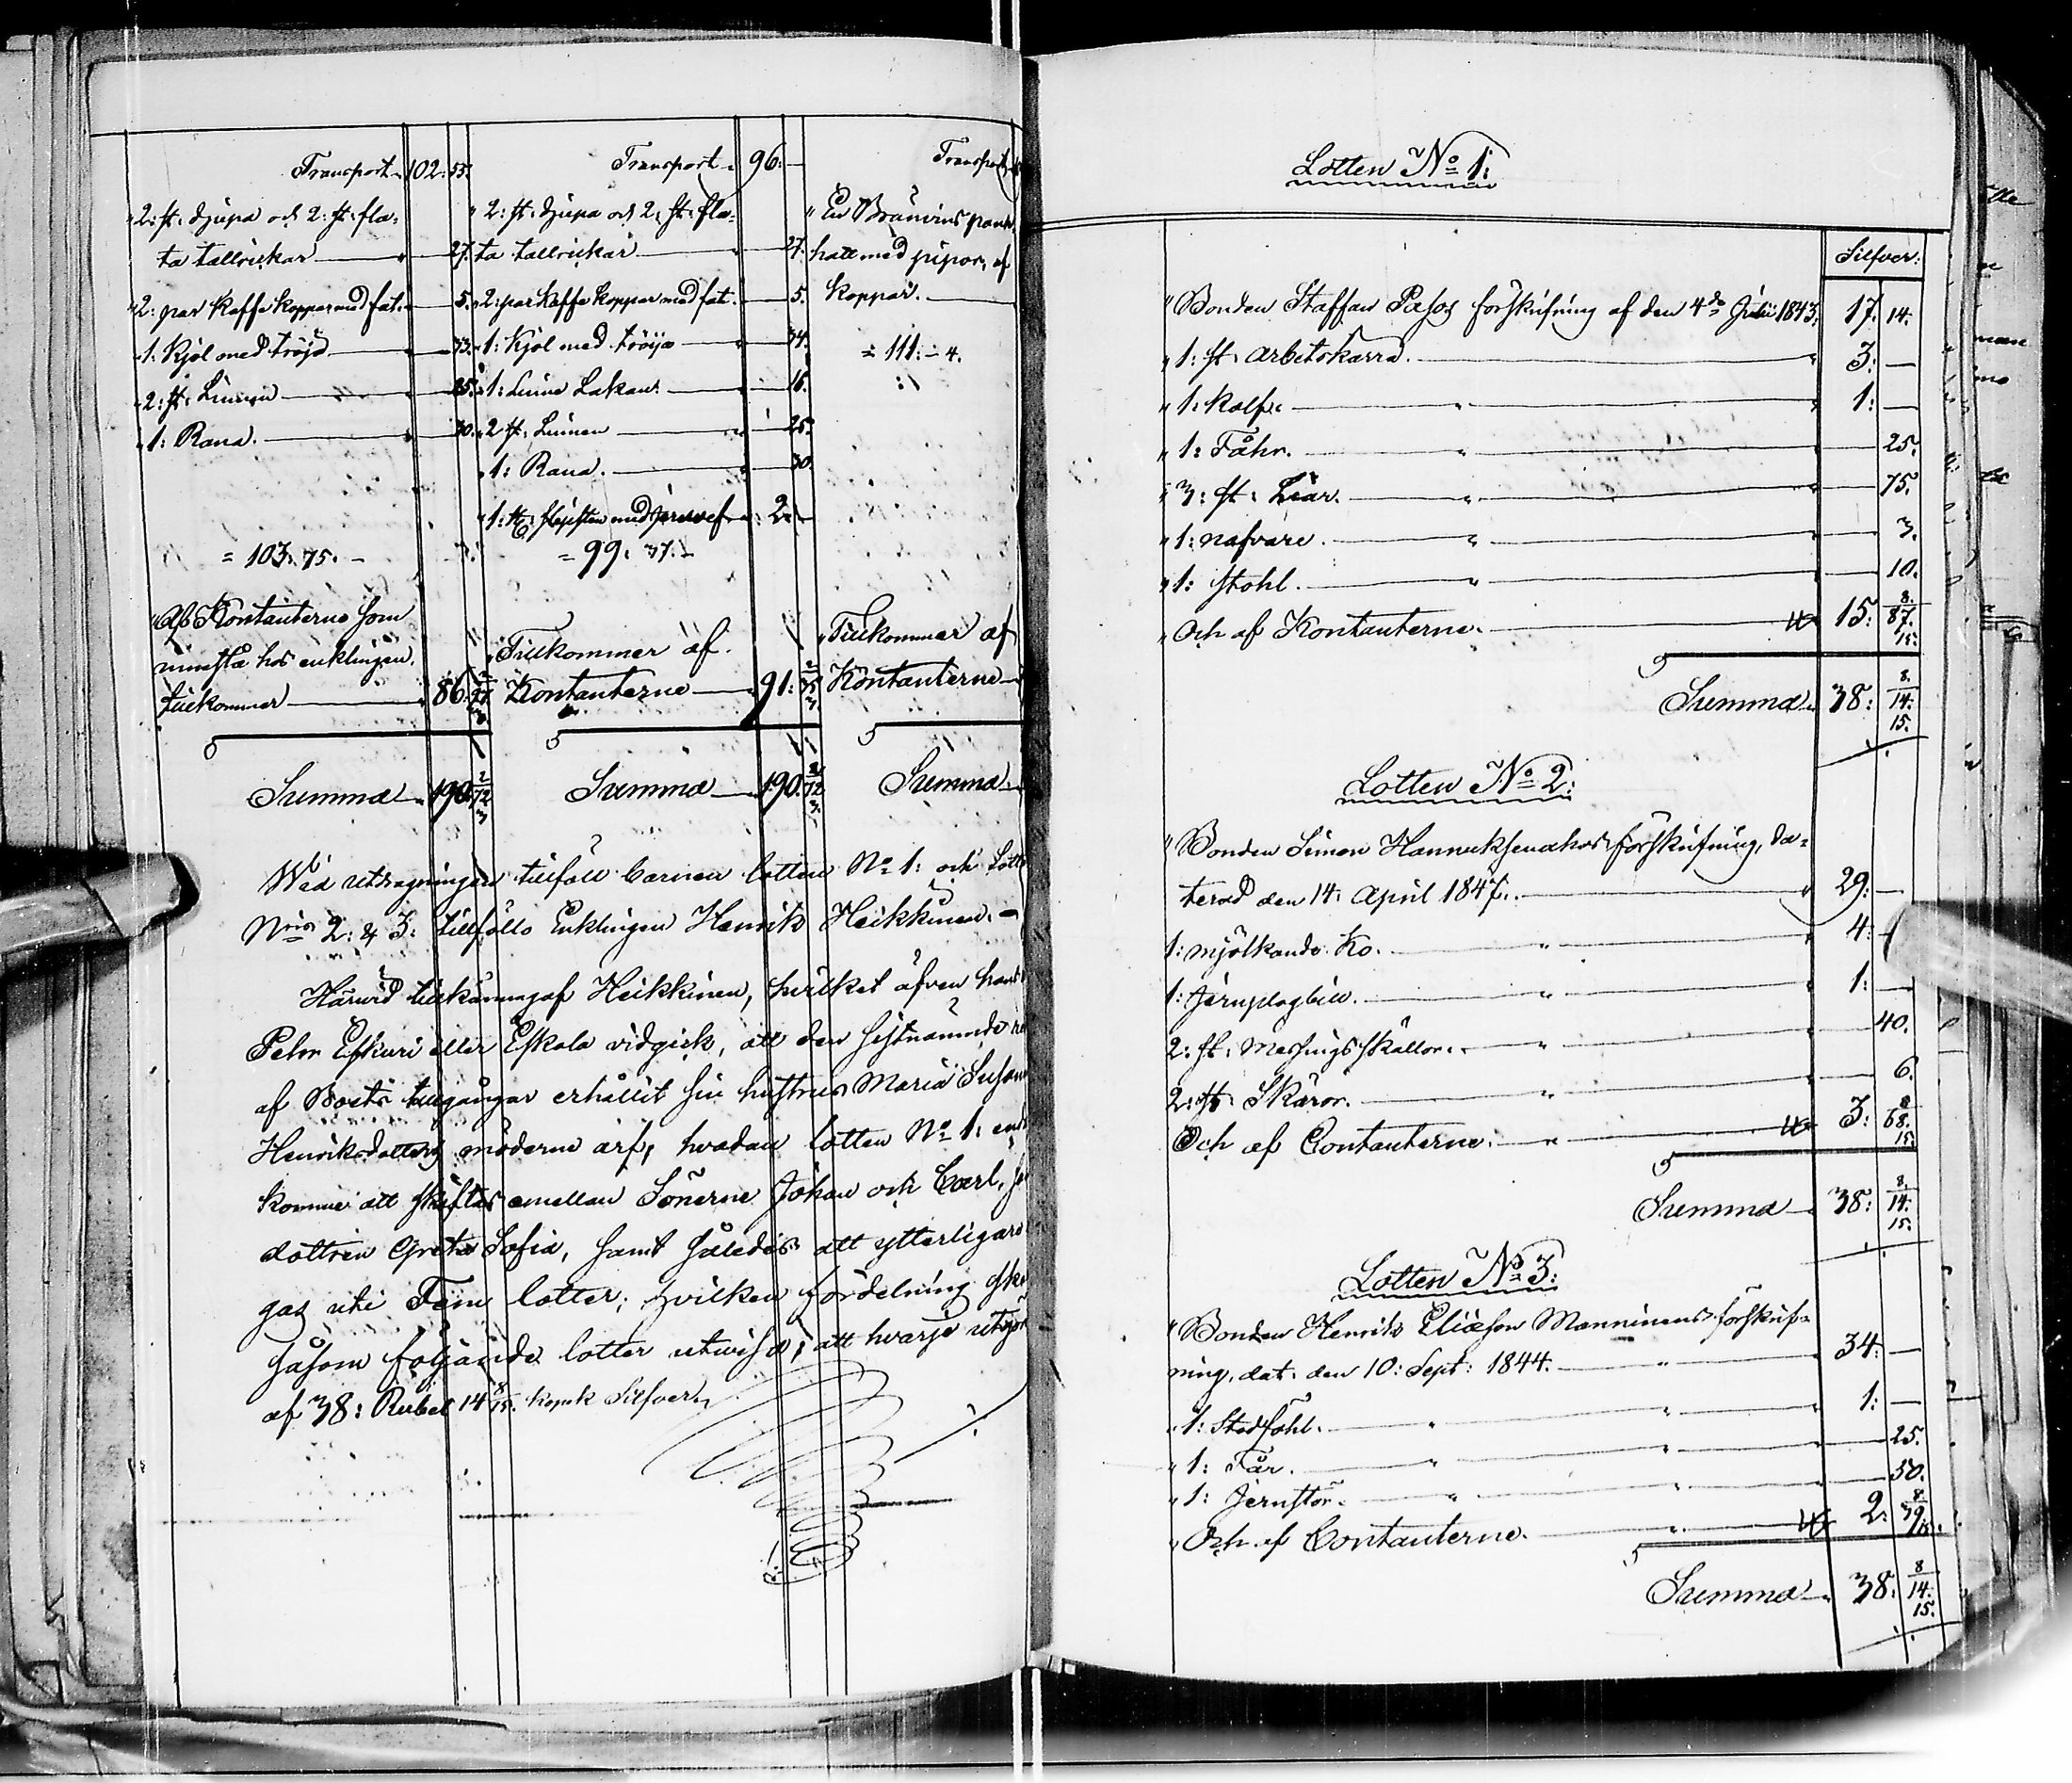 Transport 102. 55.
"2: st: djupa och 2: st: fla-
ta tallrickar 27.
"2: par Kaffe koppar med fat. 5.
"1. Kjol med tröja 33.
"2: st: Linnen 25.
"1: Rana. 30.
= 103. 75. -
"Af Kontanterne som
innestå hos enklingen
tillkommer 86.
Summa 190. 2/72/3
Transport 96. -
"2: st: djupa och 2: st: fla-
ta tallrickar 27.
"2: par Kaffe koppar med fat. 5.
"1: Kjol med tröja 34.
"1: Linne Lakan. 15.
"2 st: Linnen 25.
"1: Rana. 30.
"1: st: slipsten med 2. -
= 99. 37. -
"Tillkommer af
Kontanterne 91: 2/35/3
Summa 190. 2/72/3
Transport
"En Bränvins panna
hatt med pipor, af
koppar.
= 111. - 4.
"Tillkommer af
Kontanterne
Summa
Wid utdragningen tillföll barnen lotten No 1: och Lott
Nris 2: & 3: tillföllo Enklingen Henrik Heikkinen. -
Härvid tillkännagaf Heikkinen, hvilket äfven
Pehr Eskuri eller Eskola vidgick, att den sistnämnde
af Boets tillgångar erhållit sin hustrus Maria Susanna
Henriksdotters möderne arf, hvadan lotten No 1:
kommer att skiftas emellan Sönerne Johan och Carl,
dottren Greta Sofia, samt således att ytterligare
gas uti Fem lotter; hvilken fördelning
såsom följande lotter utvisa; att hvarje
af 38: Rubel 14 8/15. kopek Silfver.
Lotten No 1:
Silfver:
"Bonden Staffan Pasos förskrifning af den 4de 1843. 17. 14.
"1: st: arbetskärra. 3: -
"1: kalf. 1: -
"1: Fåhr. 25.
"3: st: Liar. 75.
"1: nafvare. 3.
"1: Stohl. 10.
"Och af Kontanterne. 15. 8/87/15.
Summa 38: 8/14/15.
Lotten No 2:
"Bonden Simon Hannuksenahos förskrifning, da-
terad den 14: April 1847. 29: -
1: mjölkande Ko. 4: -
1: Jernplogbill. 1: -
2: st: Messings skällor. 40.
2: st: Skäror. 6.
Och af Contanterne. 3: 8/68/15.
Summa 38: 8/14/15.
Lotten No 3:
"Bonden Henrik Eliæson Manninens förskrif-
ning, dat. den 10: Sept: 1844. 34: -
"1: Stodfohl. 1: -
"1: Får. 25.
"1: Jernstör. 50.
"Och af Contanterne. 2: 8/39/15.
Summa 38: 8/14/15.